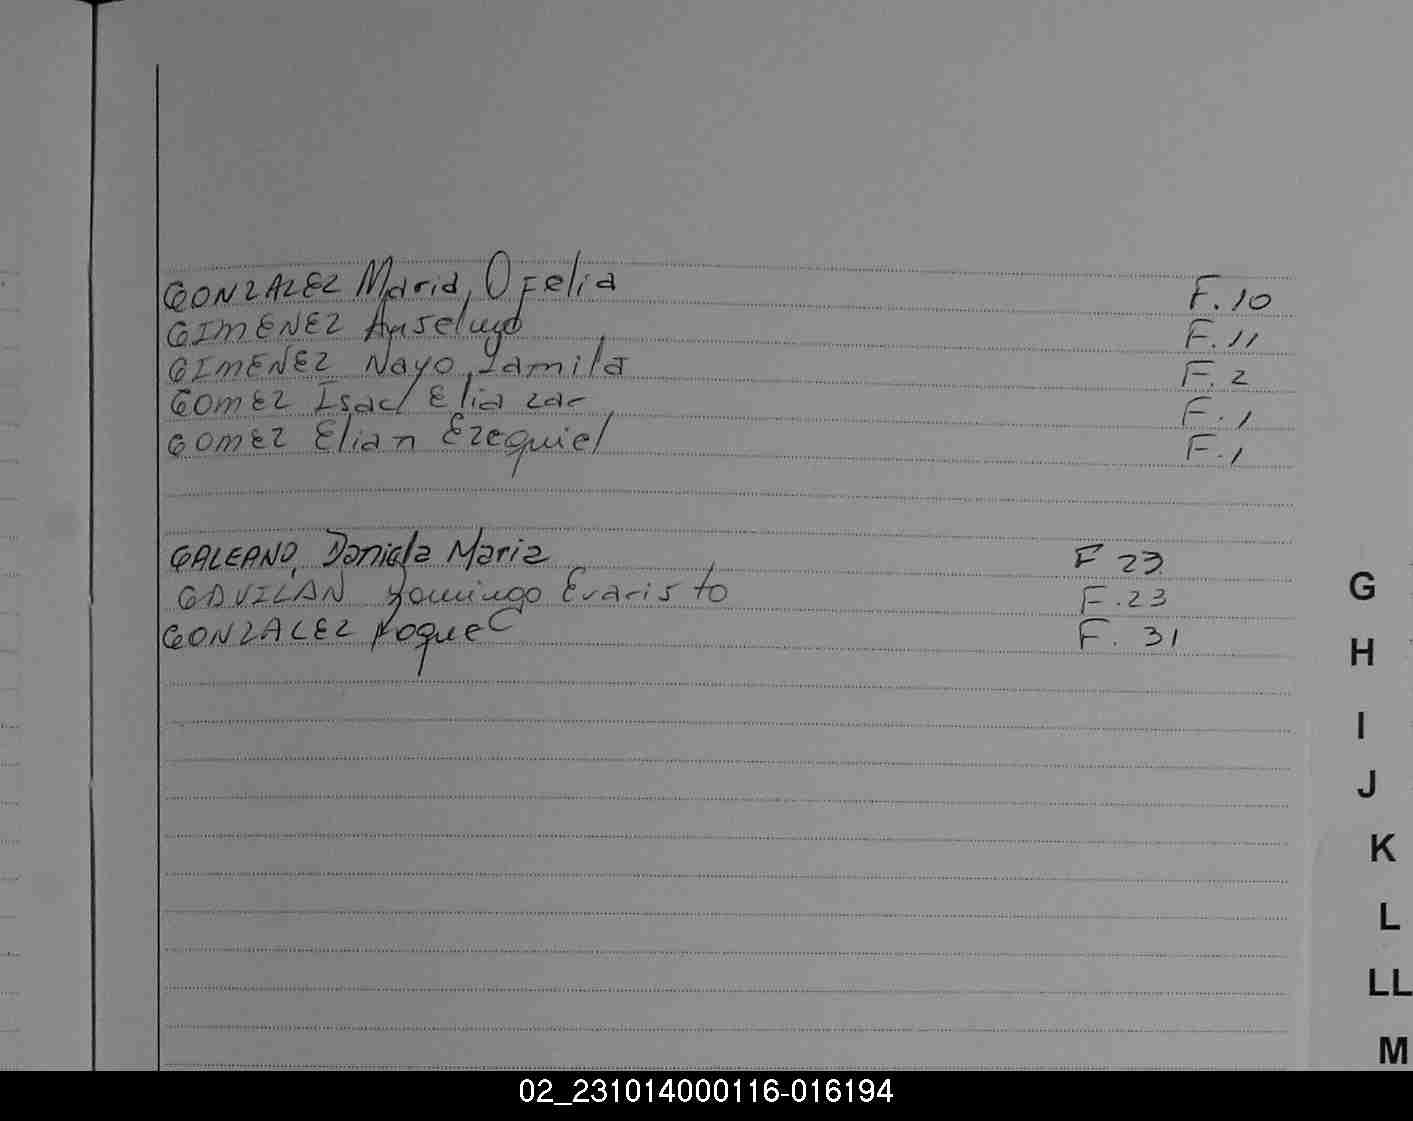 GONZALEZ Maria, Ofelia F. 10
GIMENEZ Anselmo F. 11
GIMENEZ Nayo Yamila F. 2
GOMEZ Isac Elia zar F. 1
GOMEZ Elian Ezequiel F. 1
GALEANO, Daniela Maria F 23
GAVILAN Domingo Evaristo F. 23
GONZALEZ Roque C F. 31
G
H
I
J
K
L
LL
M
02_231014000116-016194